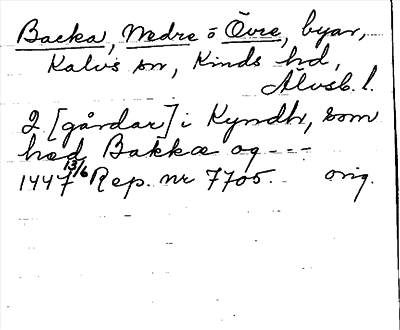 Backa, Nedre o Övre, byar,
Kalvs sn, Kinds hd,
Älvsb. l.
2 [gårdar] i Kyndh, som
hed Bakkæ og ---
1447 13/6 Rep. nr 7705. orig.